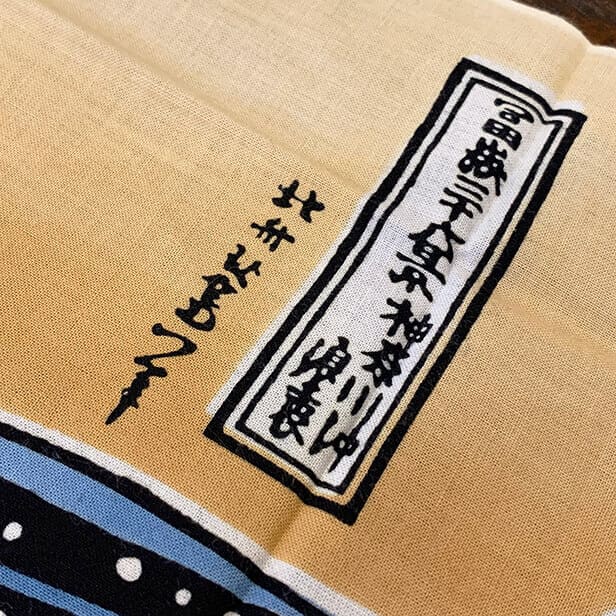 冨嶽三十六景神奈川沖
浪裏
北斎改為一筆